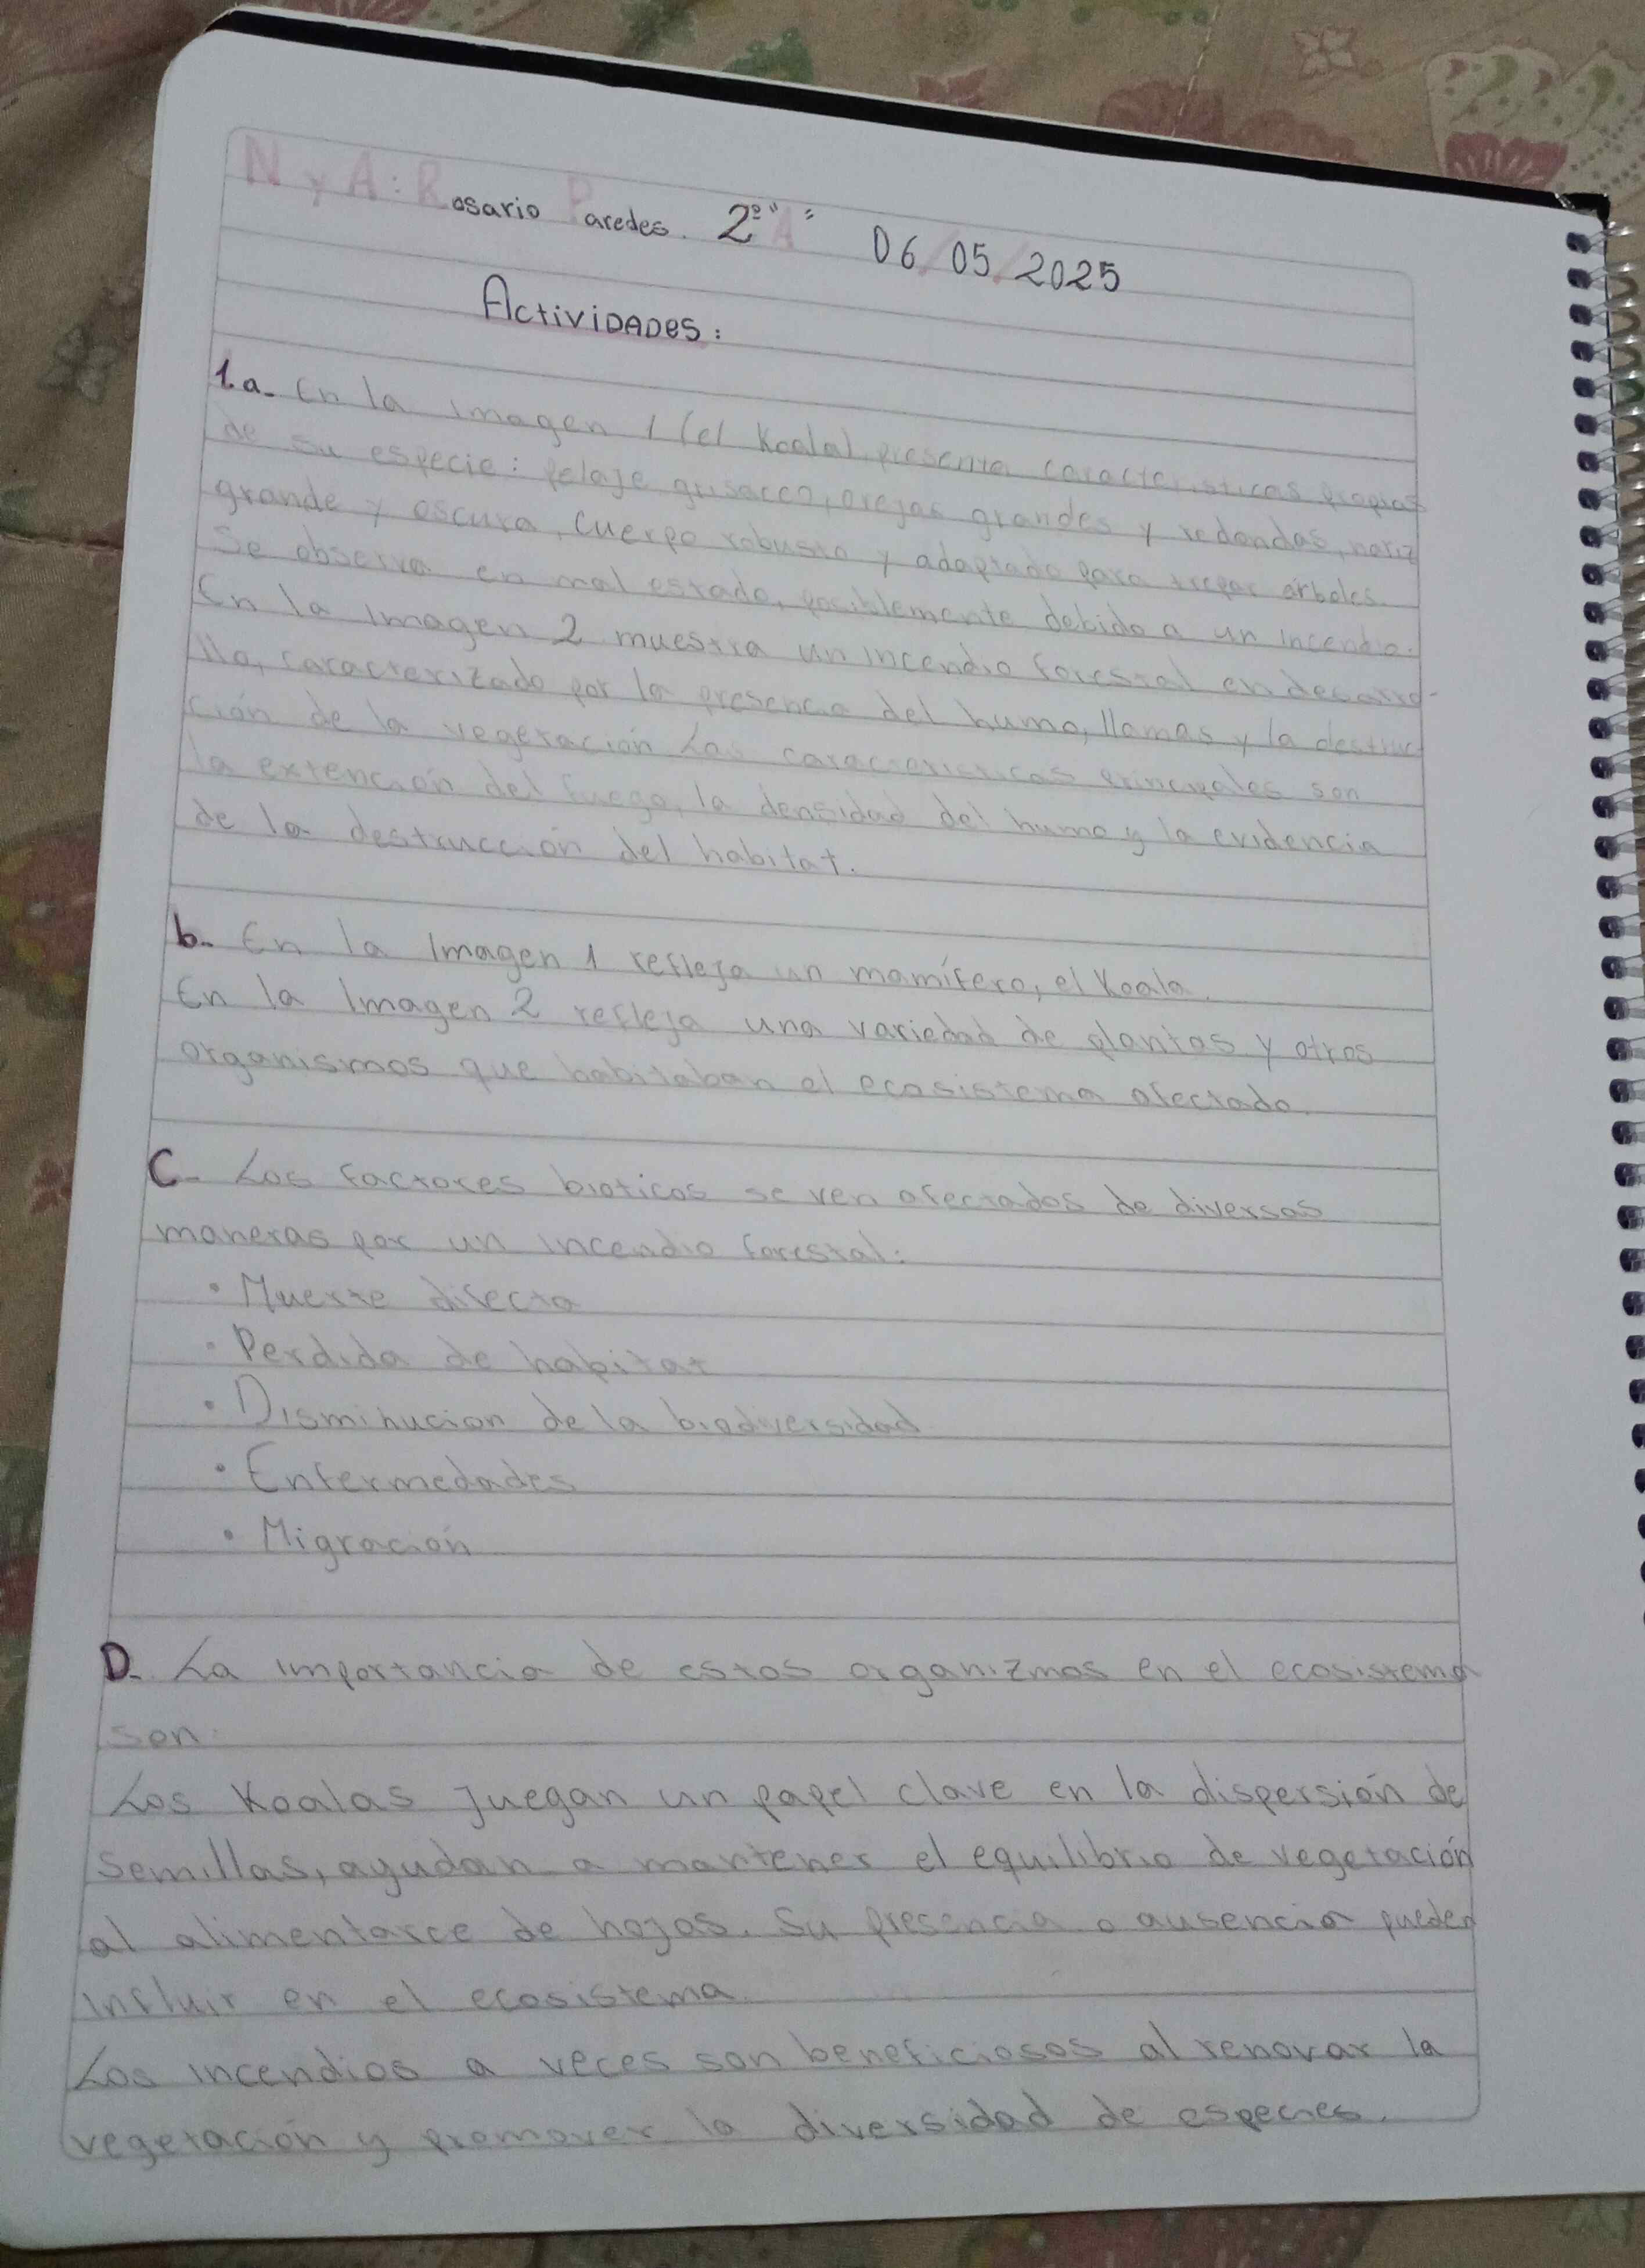 N y A: Rosario Paredes. 2º "A" 06/05/2025
Actividades:
1.a. En la imagen 1 (el Koala) presenta caracteristicas propias
de su especie: pelaje grisaceo, orejas grandes y redondas, nariz
grande y oscura, cuerpo robusto y adaptado para trepar árboles.
Se observa en mal estado, posiblemente debido a un incendio.
En la imagen 2 muestra un incendio forestal en desarro-
llo, caracterizado por la presencia del humo, llamas y la destruc
ción de la vegetación Las caracteristicas principales son
la extención del fuego, la densidad del humo y la evidencia
de la destrucción del habitat.
b. En la Imagen 1 refleja un mamífero, el Koala.
En la Imagen 2 refleja una variedad de plantas y otros
organismos que habitaban el ecosistema afectado.
C. Los factores bioticos se ven afectados de diversas
maneras por un incendio forestal:
• Muerte directa
• Perdida de habitat
• Disminucion de la biodiversidad
• Enfermedades
• Migración
D. La importancia de estos organizmos en el ecosistema
son:
Los Koalas juegan un papel clave en la dispersión de
semillas, ayudan a mantener el equilibrio de vegetación
al alimentarce de hojas. Su presencia o ausencia pueden
influir en el ecosistema.
Los incendios a veces son beneficiosos al renovar la
vegetación y promover la diversidad de especies.